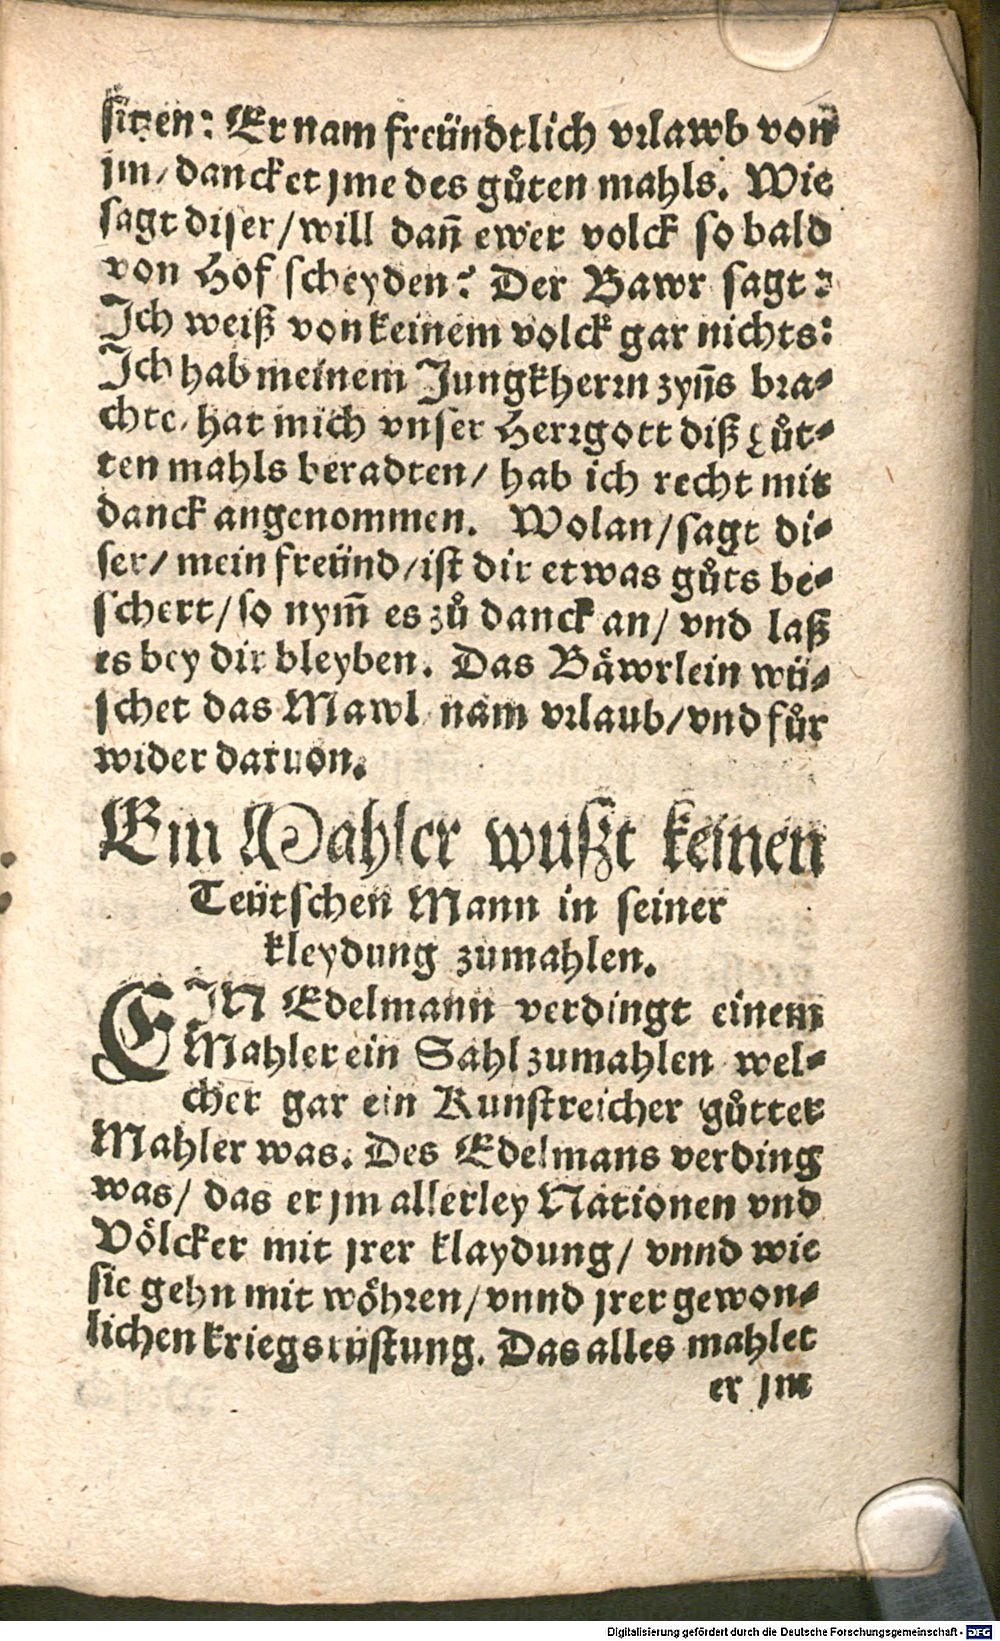 sitzen: Er nam freündtlich vrlawb von
jm/ dancket jme des gůten mahls. Wie
sagt diser/ will dañ ewer volck so bald
von Hof scheyden? Der Bawr sagt:
Ich weiß von keinem volck gar nichts:
Ich hab meinem Jungkherrn zyñs bra-
chte, hat mich vnser Herrgott diß gůt-
ten mahls beradten/ hab ich recht mit
danck angenommen. Wolan/ sagt di-
ser/ mein freünd/ ist dir etwas gůts be-
schert/ so nym̃ es zů danck an/ vnd laß
es bey dir bleyben. Das Bäwrlein wü-
schet das Mawl nam vrlaub/ vnd fůr
wider daruon.
Ein Mahler wußt keinen
Teütschen Mann in seiner
kleydung zumahlen.
EIN Edelmann verdingt einem
Mahler ein Sahl zumahlen wel-
cher gar ein Kunstreicher gůtter
Mahler was. Des Edelmans verding
was/ das er jm allerley Nationen vnd
Völcker mit jrer klaydung/ vnnd wie
sie gehn mit wöhren/ vnnd jrer gewon-
lichen kriegsrüstung. Das alles mahlet
er jm
Digitalisierung gefördert durch die Deutsche Forschungsgemeinschaft - DFG